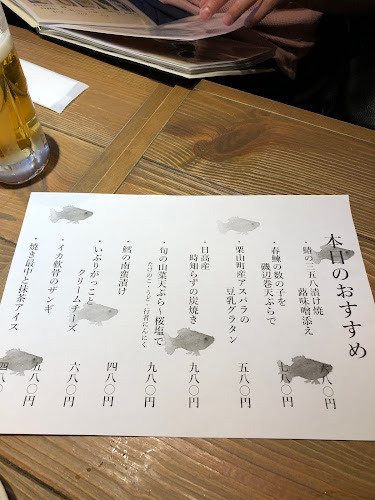 本日のおすすめ
・鰆の三五八漬け焼
蕗味噌添え
八八〇円
・春鰊の数の子を
磯辺巻天ぷらで
七八〇円
・栗山町産アスパラの
豆乳グラタン
五八〇円
・日高産
時知らずの炭焼き
九八〇円
・旬の山菜天ぷら～桜塩で
たけのこ・うど・行者にんにく
九八〇円
・鱈の南蛮漬け
四八〇円
・いぶりがっこと
クリームチーズ
六八〇円
・イカ軟骨のザンギ
五八〇円
・焼き最中と抹茶アイス
四八〇